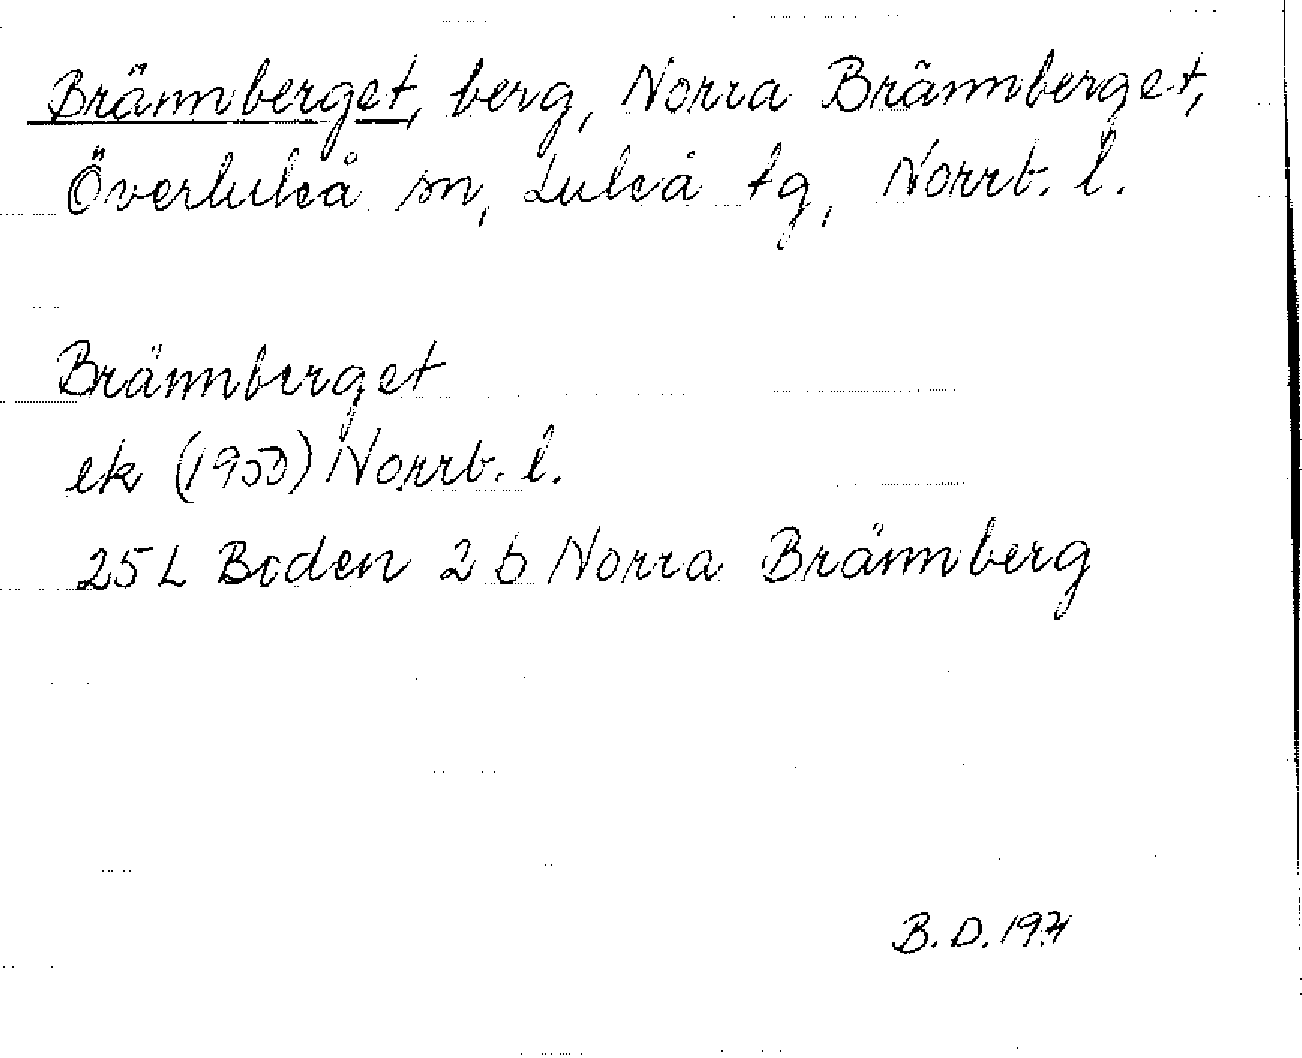 Brännberget, berg, Norra Brännberget,
Överluleå sn, Luleå tg, Norrb. l.
Brännberget
ek (1950) Norrb. l.
25 L Boden 2 b Norra Brännberg
B. D. 1971